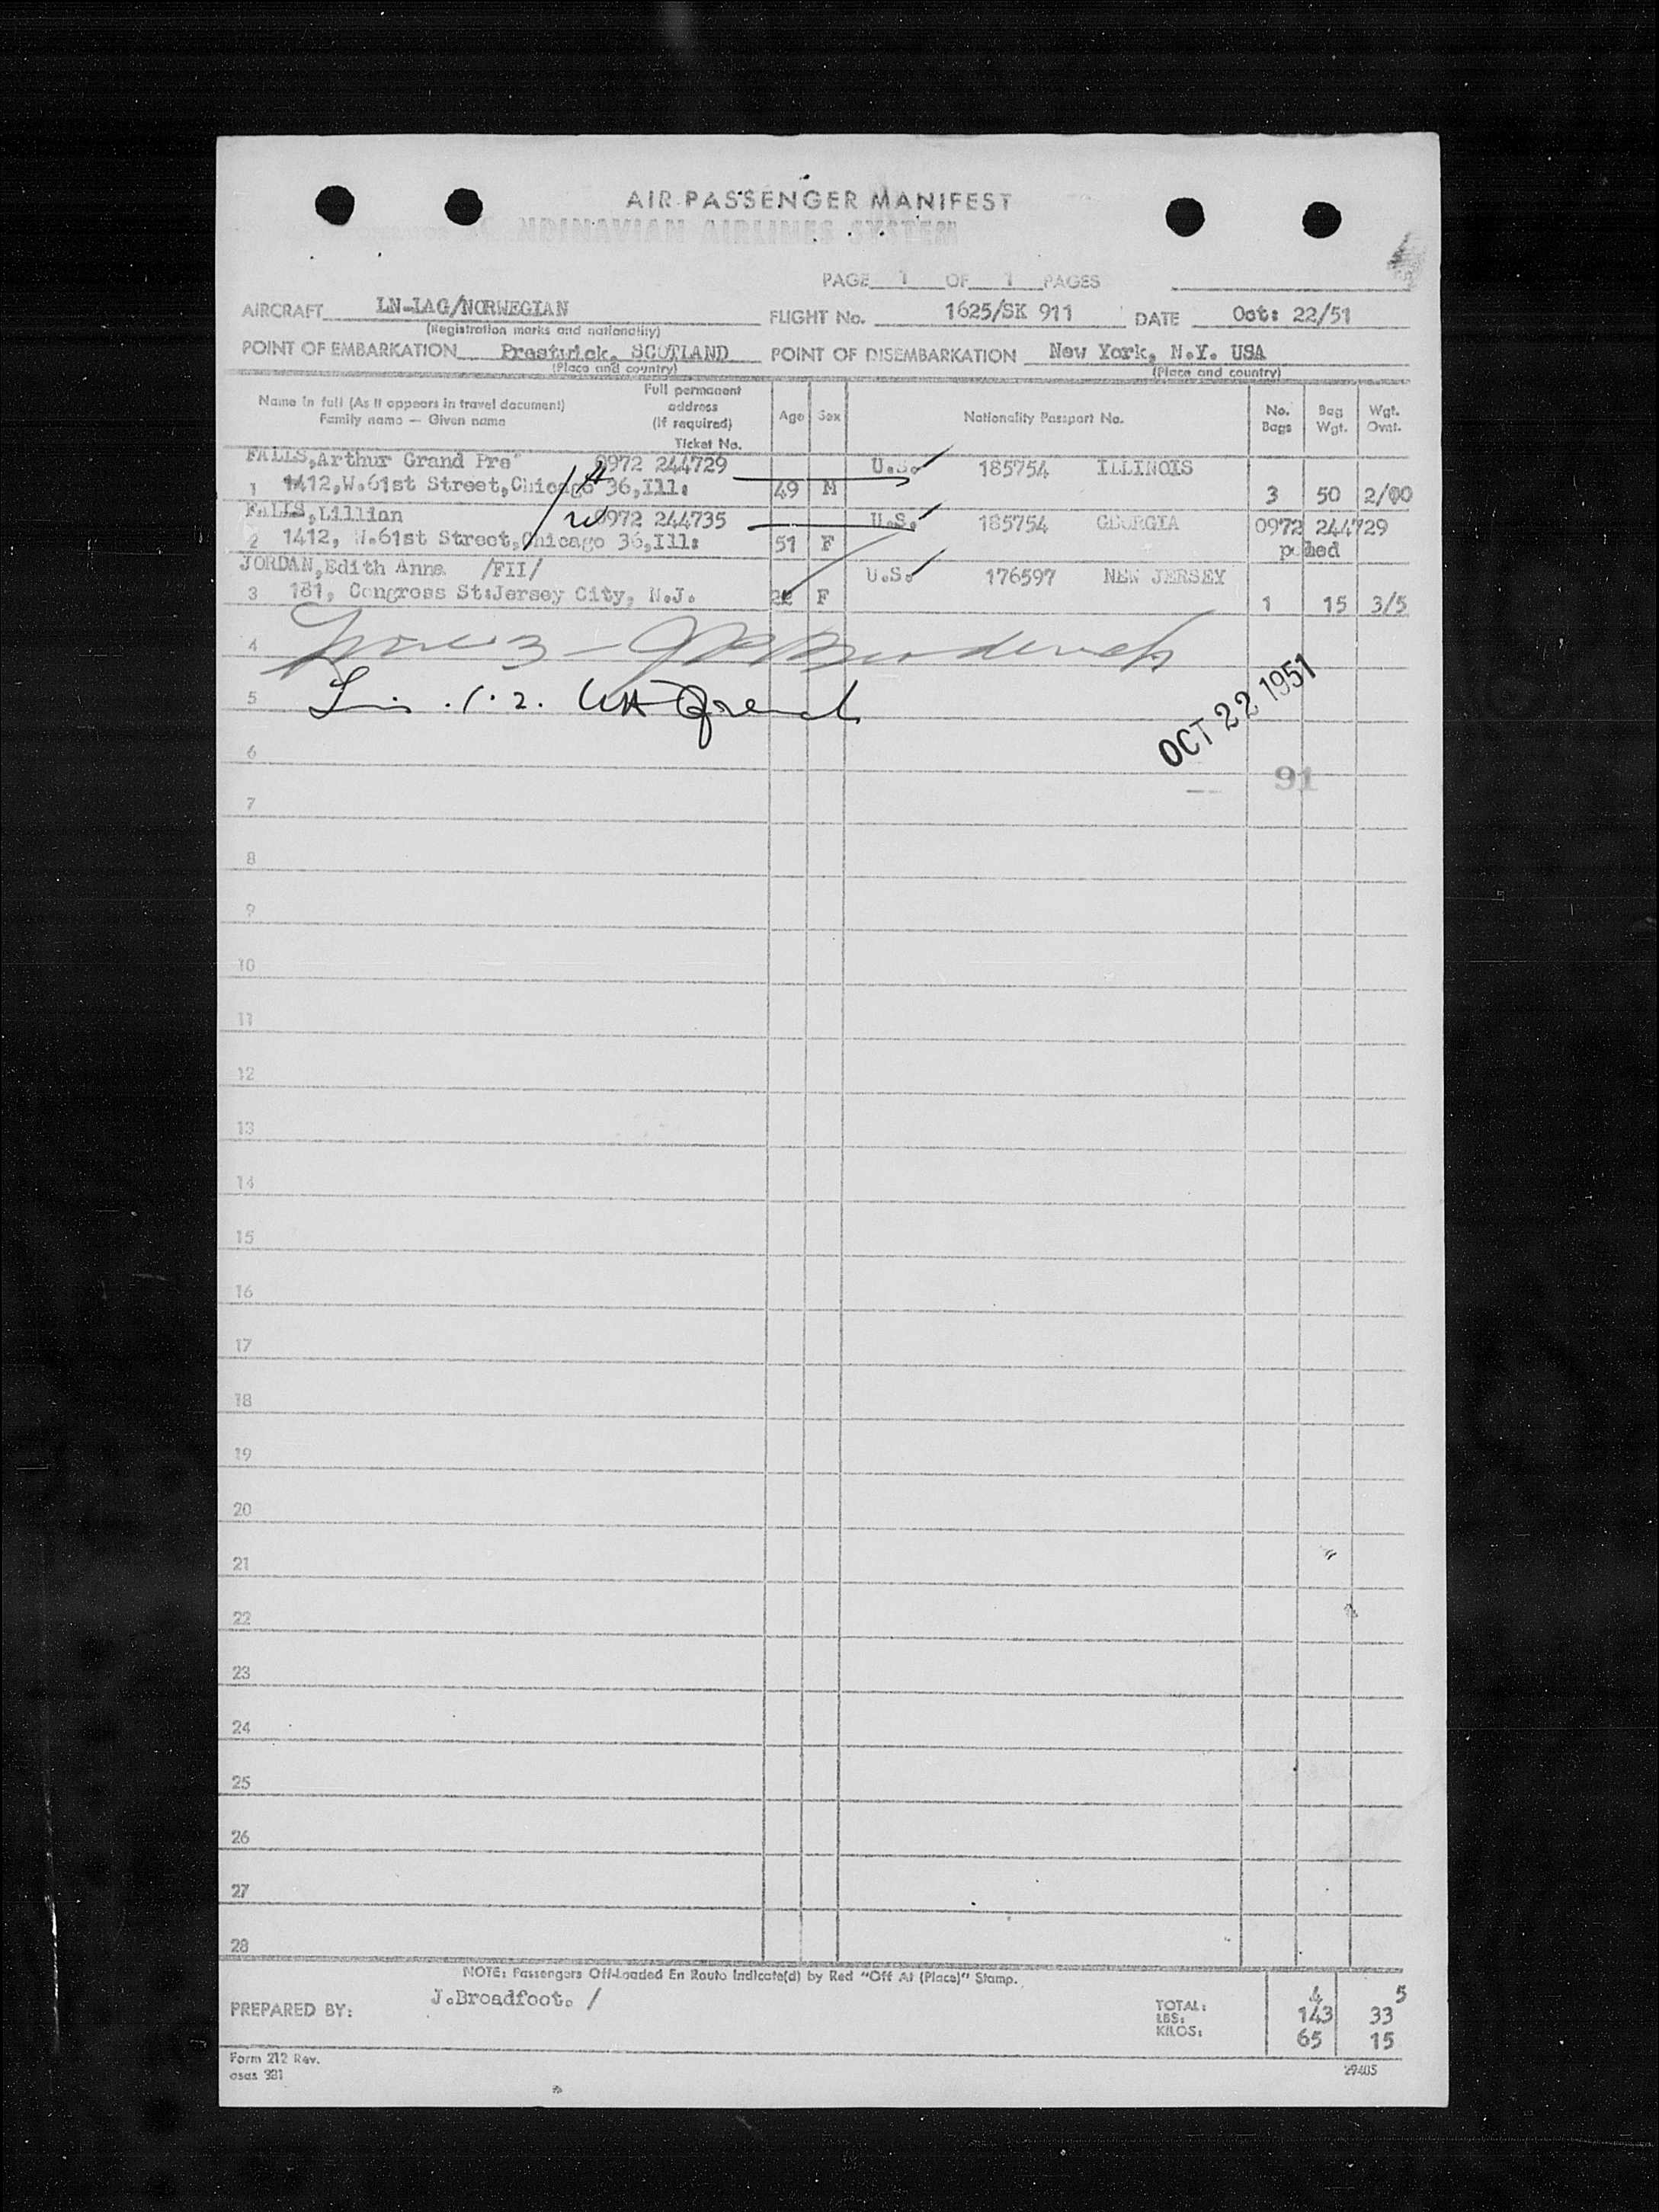 AIR PASSENGER MANIFEST
NDINAVIAN AIRLINES SYSTEM
PAGE 1 OF 1 PAGES
AIRCRAFT LN-LAG/NORWEGIAN FLIGHT No. 1625/SK 911 DATE Oct: 22/51
(Registration marks and nationality)
POINT OF EMBARKATION Prestwick, SCOTLAND POINT OF DISEMBARKATION New York, N.Y. USA
(Place and country) (Place and country)
Name in full (As it appears in travel document) Family name — Given name Full permanent address (If required) Ticket No. Age Sex Nationality Passport No. No. Bags Bag Wgt. Wgt. Ovnt.
FALLS,Arthur Grand Pre" 0972 244729 U.S. 185754 ILLINOIS
1 1412,W.61st Street,Chicago 36,Ill: 49 M 3 50 2/00
FALLS,Lillian 0972 244735 U.S. 185754 GEORGIA 0972 244729
2 1412, W.61st Street,Chicago 36,Ill: 51 F
JORDAN,Edith Anna /FII/ U.S. 176597 NEW JERSEY
3 181, Congress St:Jersey City, N.J. F 1 15 3/5
4
5
OCT 22 1951
6
91
7
8
9
10
11
12
13
14
15
16
17
18
19
20
21
22
23
24
25
26
27
28
NOTE: Passengers Off-Loaded En Route Indicate(d) by Red "Off At (Place)" Stamp.
PREPARED BY: J.Broadfoot. /
TOTAL: 4 5
LBS: 143 33
KILOS: 65 15
Form 212 Rev.
29405